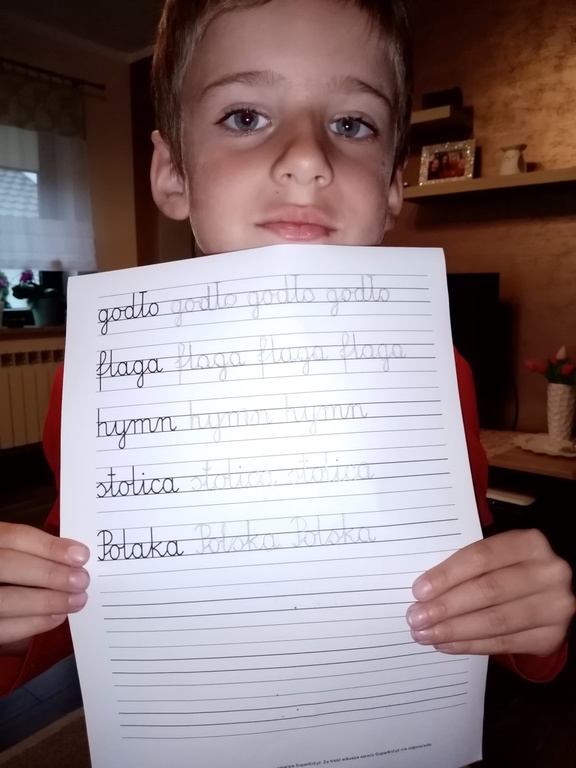 godło godło godło godło
flaga flaga flaga flaga
hymn hymn hymn
stolica stolica stolica
Polska Polska Polska